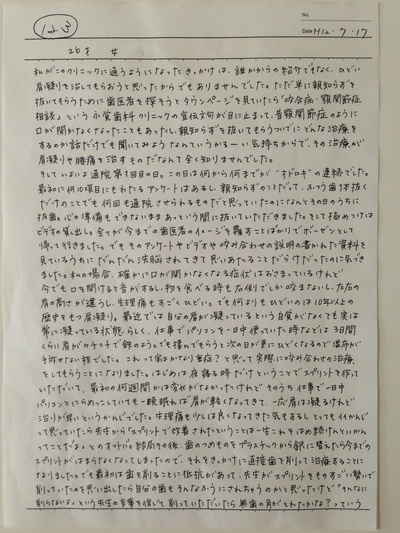 123
No.
Date H12・7・17
26才 女
私がこのクリニックに通うようになったきっかけは、誰かからの紹介でもなく、ひどい
肩凝りを治してもらおうと思ったからでもありませんでした。ただ単に親知らずを
抜いてもらうために歯医者を探そうとタウンページを見ていたら「咬合病・顎関節症
相談」という 永賀歯科クリニックの宣伝文句が目に止まって、昔顎関節症のように
口が開かなくなったこともあったし、親知らずを抜いてもらうついでにどんな治療を
するのか話だけでも聞いてみようなんていうかるーい気持ちからで、その治療が
肩凝りや腰痛を治すものだなんて全く知りませんでした。
そしていよいよ通院第1回目の日。この日は何から何までが"オドロキ"の連続でした。
最初に何10項目にもわたるアンケートはあるし、親知らずのことだって、ふつう歯1本抜く
だけのことでも何回も通院させられるものだと思っていたのになんとその日のうちに
抜歯。心の準備もできないままあっという間に抜いていただきました。そして極めつけは
ビデオの貸出し。全てが今までの歯医者のイメージを覆すことばかりでボーゼンとして
帰って行きました。でもそのアンケートやビデオや咬み合わせの説明の書かれた資料を
見ているうちにだんだん洗脳されてきて思いあたることだらけだったのに気づき
ました。私の場合、確かに口が開かなくなる症状はおさまっているけれど
今でも口を開けると音がするし、物を食べる時も右側でしか咬まないし、左右の
肩の高さが違うし、生理痛もすごくひどい。でも何よりもひどいのは10年以上の
歴史をもつ肩凝り。最近では自分の肩が凝っているという自覚がなくても実は
常に凝っている状態らしく、仕事でパソコンを一日中使っていた時などは3日間
くらい肩がカチコチで鉄のよう。でも揉んでもらうと次の日が更にひどくなるので湿布が
手放せない程でした。これって実はかなり重症？と思って実際に咬み合わせの治療
をしてもらうことになりました。はじめは寝る時だけということでスプリントを作って
いただいて、最初の何週間かは変化がなかったけれどそのうち仕事で一日中
パソコンとにらめっこしていても一晩眠れば肩が軽くなってきて、一応肩は凝るけれど
治りが早いというかんじでした。生理痛も少しは良くなってきた気もするしとってもイイかんじ
って思っていたら先生から「スプリントで改善されたということは一生これをはめ続けれといかん
ってことだよ」とのオコトバ。結局その後、歯のつめものをプラスチックから銀に替えたら今までの
スプリントがはまらなくなってしまったので、それをきっかけに直接歯を削って治療することに
なりました。でも最初は歯を削ることに抵抗があって、先生がスプリントをものすごい勢いで
削っていたのを思い出したら自分の歯もそんなふうにされちゃうのかと思ったけど「そんなに
削らないよ」という先生の言葉を信じて削っていただいたら 歯の角がとれたかな？っていう